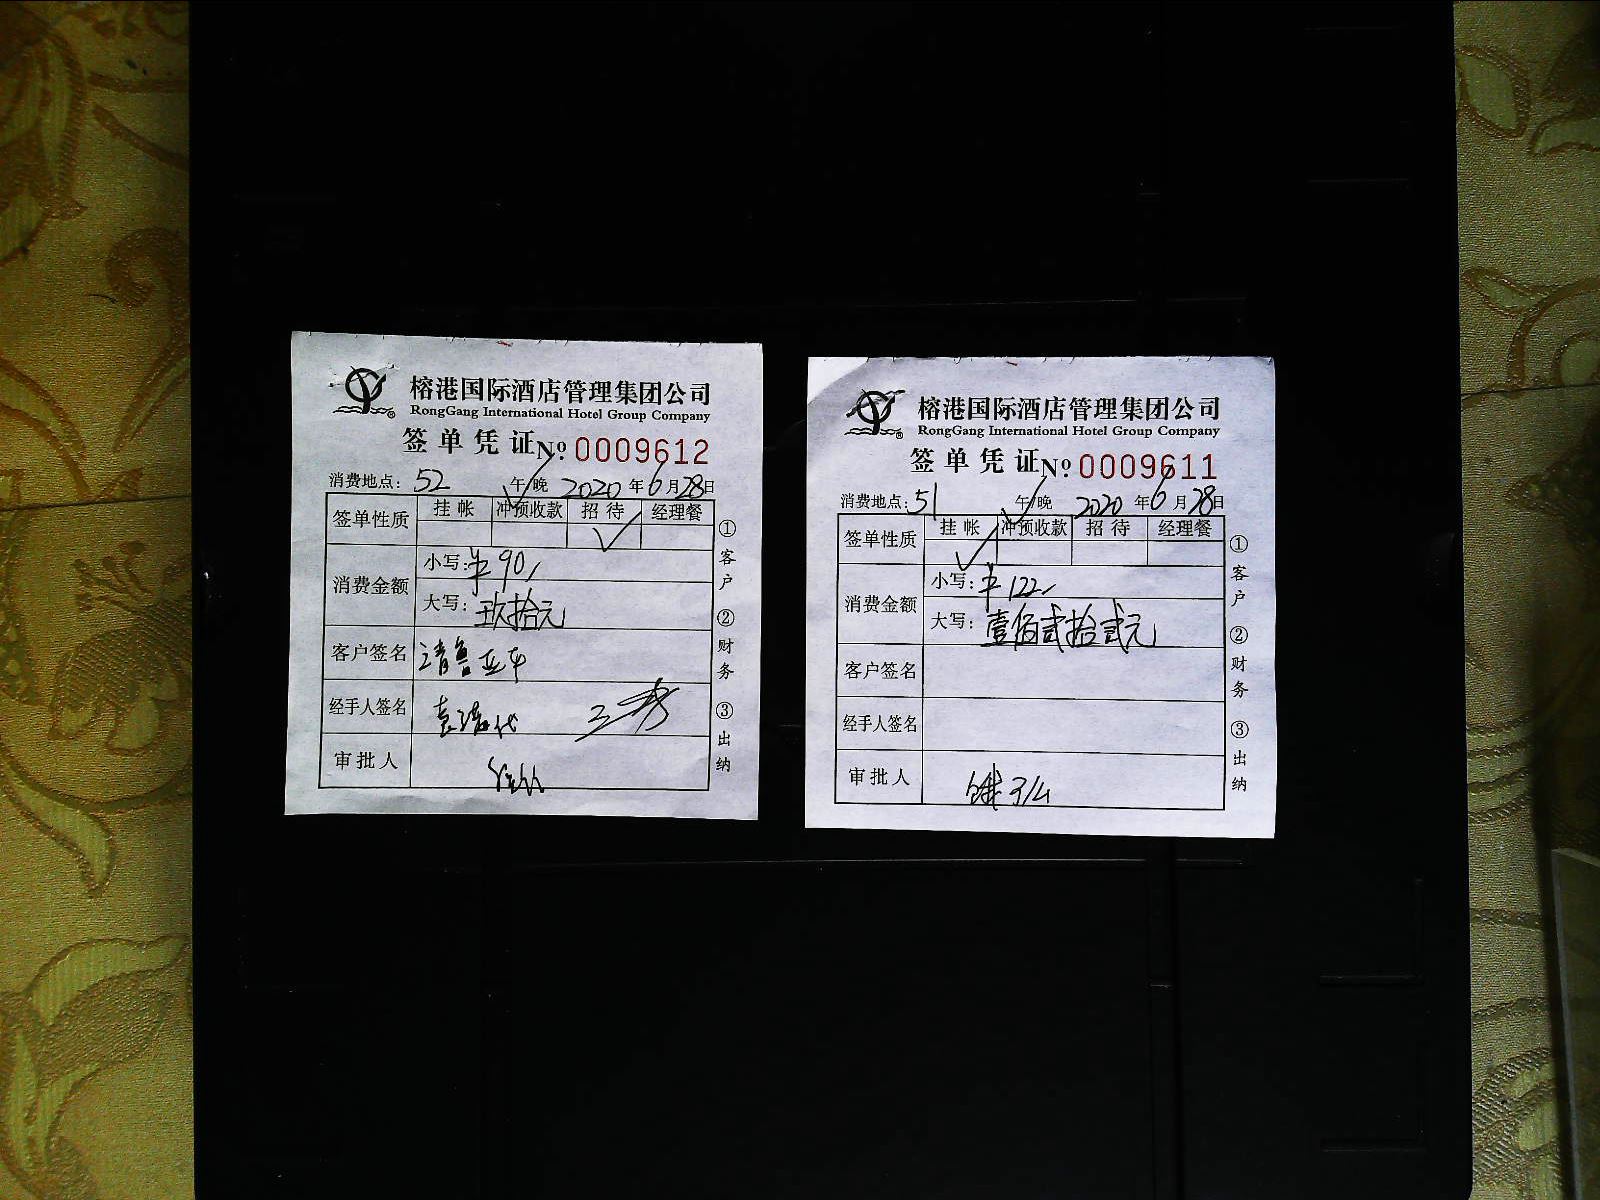 榕港国际酒店管理集团公司
RongGang International Hotel Group Company
签单凭证 № 0009612
消费地点: 52 午/晚 2020 年 6 月 28 日
签单性质 挂帐 冲预收款 招待 经理餐
消费金额
小写: ¥90/
大写: 玖拾元
客户签名
经手人签名
审批人
① 客户 ② 财务 ③ 出纳
榕港国际酒店管理集团公司
RongGang International Hotel Group Company
签单凭证 № 0009611
消费地点: 51 午/晚 2020 年 6 月 28 日
签单性质 挂帐 冲预收款 招待 经理餐
消费金额
小写: ¥122/
大写: 壹佰贰拾贰元
客户签名
经手人签名
审批人
① 客户 ② 财务 ③ 出纳